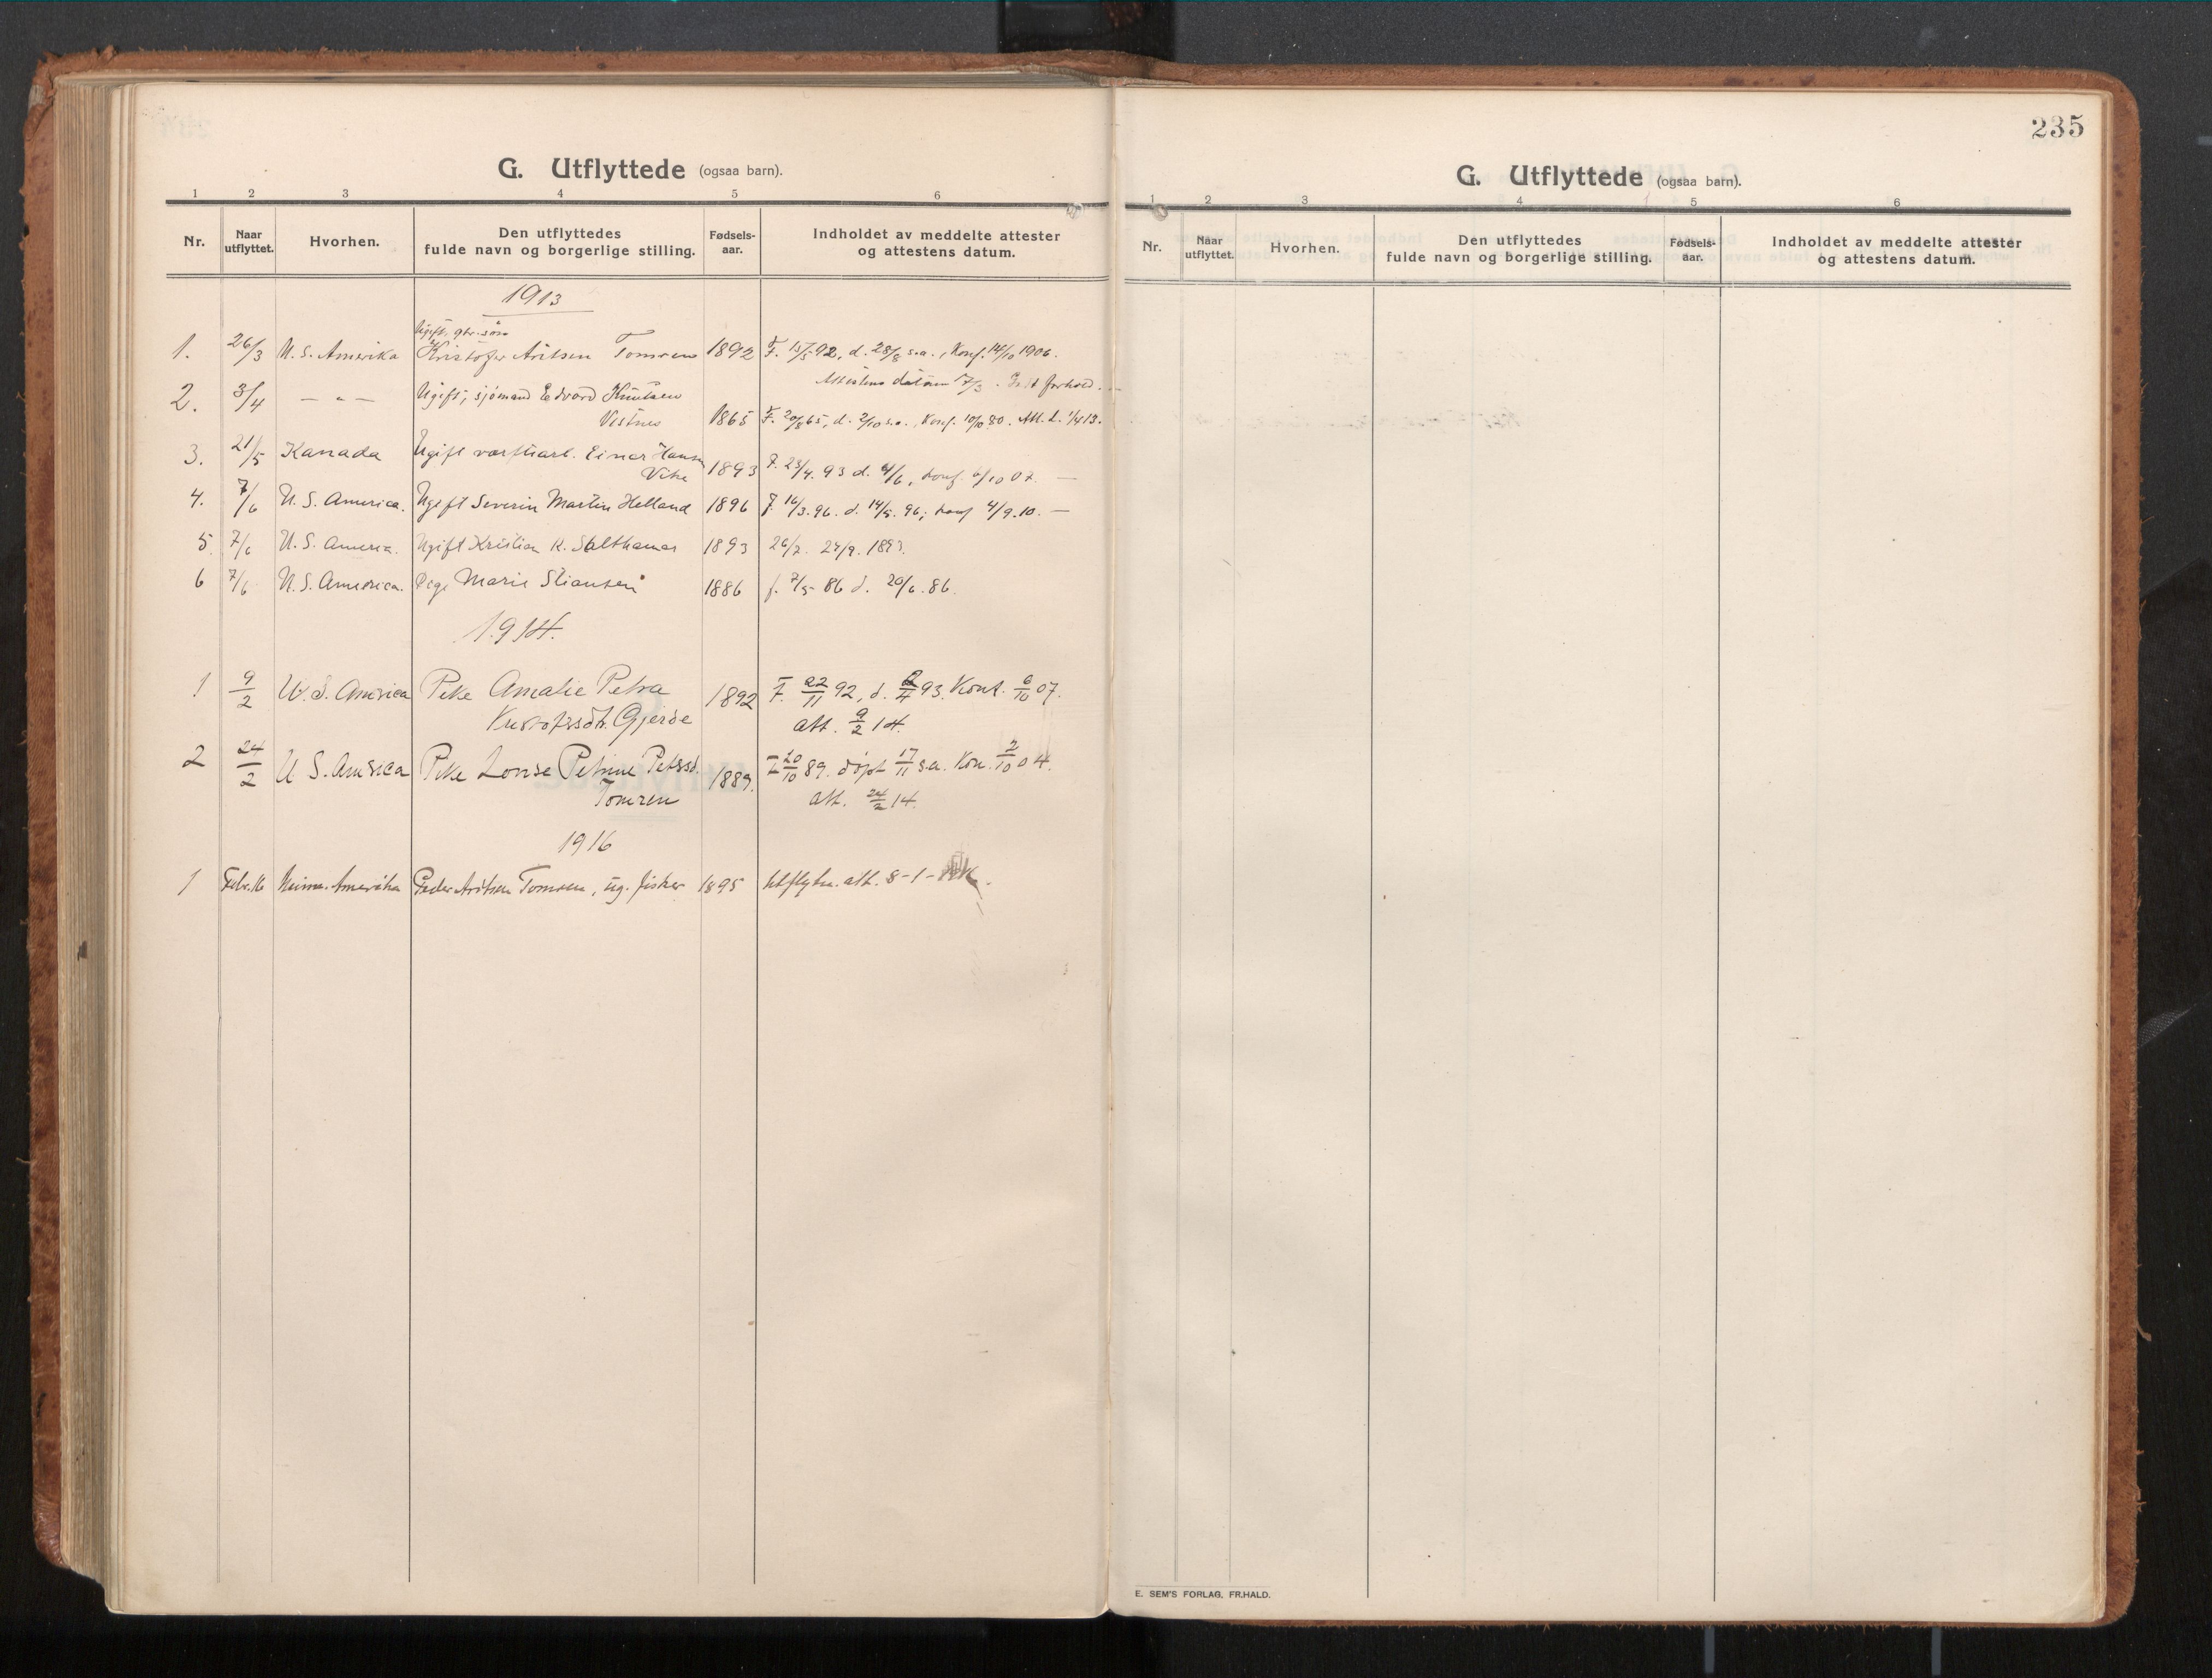 G. Utflyttede (ogsaa barn).
1 2 3 4 5 6
Nr. Naar utflyttet. Hvorhen. Den utflyttedes fulde navn og borgerlige stilling. Fødsels-aar. Indholdet av meddelte attester og attestens datum.
1913
Ugift, gbr. søn
1. 26/3 U. S. Amerika Kristofer Aritsen Tomren 1892 F. 15/5 92, d. 28/8 s.a., Konf. 14/10 1906.
Attestens datum 17/3. forhold.
2. 3/4 — " — Ugift, sjømand Edvard Knutsen
Vestnes 1865 F. 20/8 65, d. 2/10 s.a., Konf. 10/10 80. Att. d. 1/4 13.
3. 21/5 Kanada Ugift Einar Hansen
Vike 1893 F. 23/4. 93 d. 4/6, konf. 6/10 07. —
4. 7/6 U. S. America. Ugift Severin Martin Helland 1896 F. 16/3. 96. d. 14/5. 96; konf 4/9. 10. —
5. 7/6 U. S. America. Ugift Kristian K. Salthamar 1893 26/7. 24/9. 1893.
6 7/6 U. S. America. Pige Marie Stiansen 1886 f. 7/5 86 d. 20/6. 86.
1914.
1 9/2 U. S. America Pike Amalie Petra 1892 F. 22/11 92, d. 2/4 93. Konf. 6/10 07.
Kristofersdtr. Gjerde att. 9/2 14.
2 24/2 U. S. America Pike Lovise Petrine Petersd. 1889. F. 20/10 89. døpt 17/11 s.a. Kon. 2/10 04.
Tomren att. 24/2 14.
1916
1 Febr. 16 Amerika Peder Aritsen Tomren, ug. fisker 1895 Utflytn. att. 8-1-
235
G. Utflyttede (ogsaa barn).
1 2 3 4 5 6
Nr. Naar utflyttet. Hvorhen. Den utflyttedes fulde navn og borgerlige stilling. Fødsels-aar. Indholdet av meddelte attester og attestens datum.
E. SEM'S FORLAG, FR.HALD.